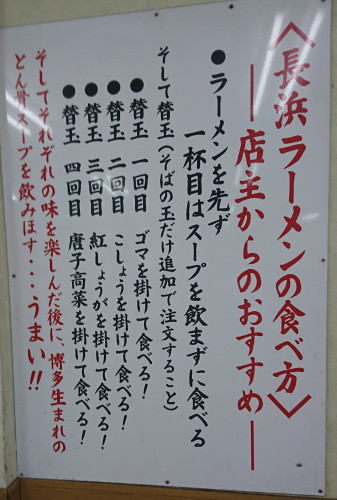 〈長浜ラーメンの食べ方〉
―店主からのおすすめ―
●ラーメンを先ず
一杯目はスープを飲まずに食べる
そして替玉(そばの玉だけ追加で注文すること)
●替玉 一回目 ゴマを掛けて食べる!
●替玉 二回目 こしょうを掛けて食べる!
●替玉 三回目 紅しょうがを掛けて食べる!
●替玉 四回目 唐子高菜を掛けて食べる!
そしてそれぞれの味を楽しんだ後に、博多生まれの
とん骨スープを飲みほす・・・うまい!!